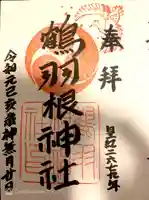 奉拝
皇紀二六七九年
鶴羽根神社
令和元己亥年神無月廿日